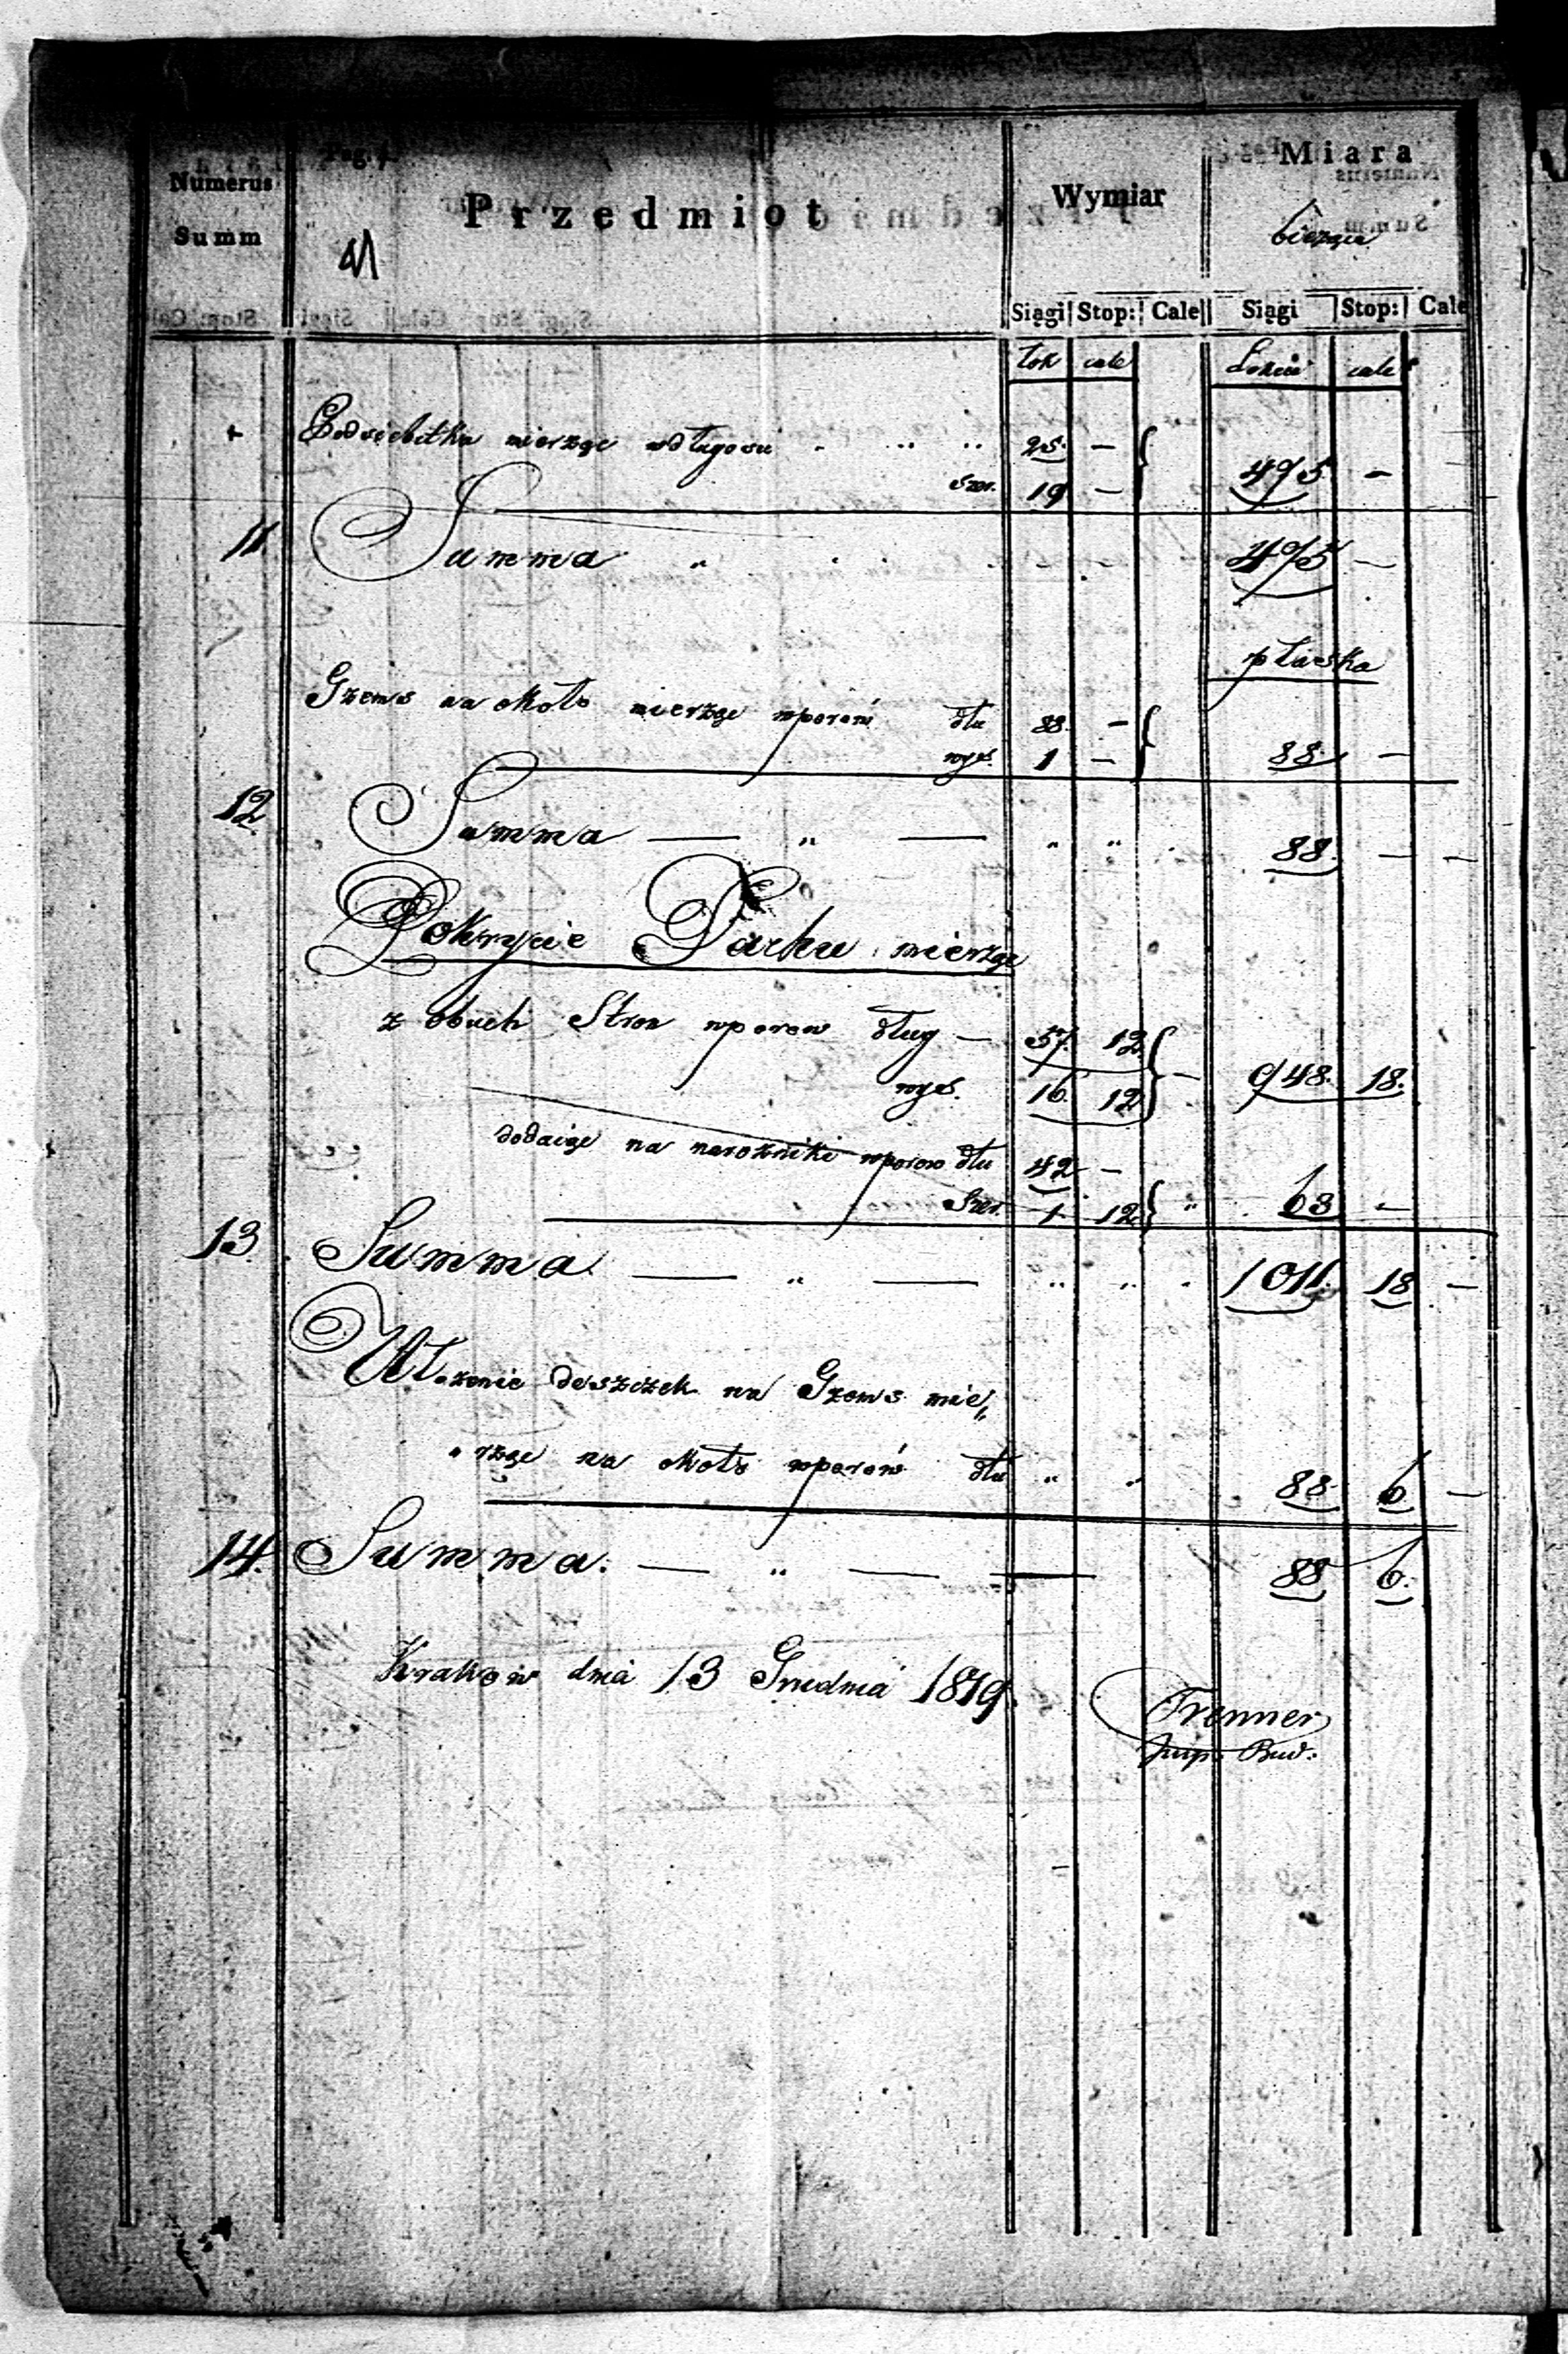 Numerus
Summ
Pag.
Przedmiot
Wymiar
Miara
bieząca
Siągi Stop: Cale Siągi Stop: Cale
łok cale Łokcie cale
Podsiebitka mierząc wdługosci 25. —
Szer. 19 — 495 —
11. Summa „ 495 —
płaska
Gzems na około mierząc wporów dłu 88. —
wys. 1 — 88. —
12. Summa — „ — „ „ 88. — —
Pokrycie Dachu mierząc
z obuch Stron wporow dług — 57. 12
wys. 16. 12 948. 18.
dodaiąc na narożniki wporow dłu 42 —
Szer. 1 12 „ 63 —
13. Summa — „ — „ „ „ 1011. 18 —
Ułozenie deszczek na Gzems mie„
„rząc na około wporów dłu „ „ 88. 6 —
14. Summa. — „ — — 88 6.
Krakow dnia 13 Grudnia 1819.
Trenner
Bud: